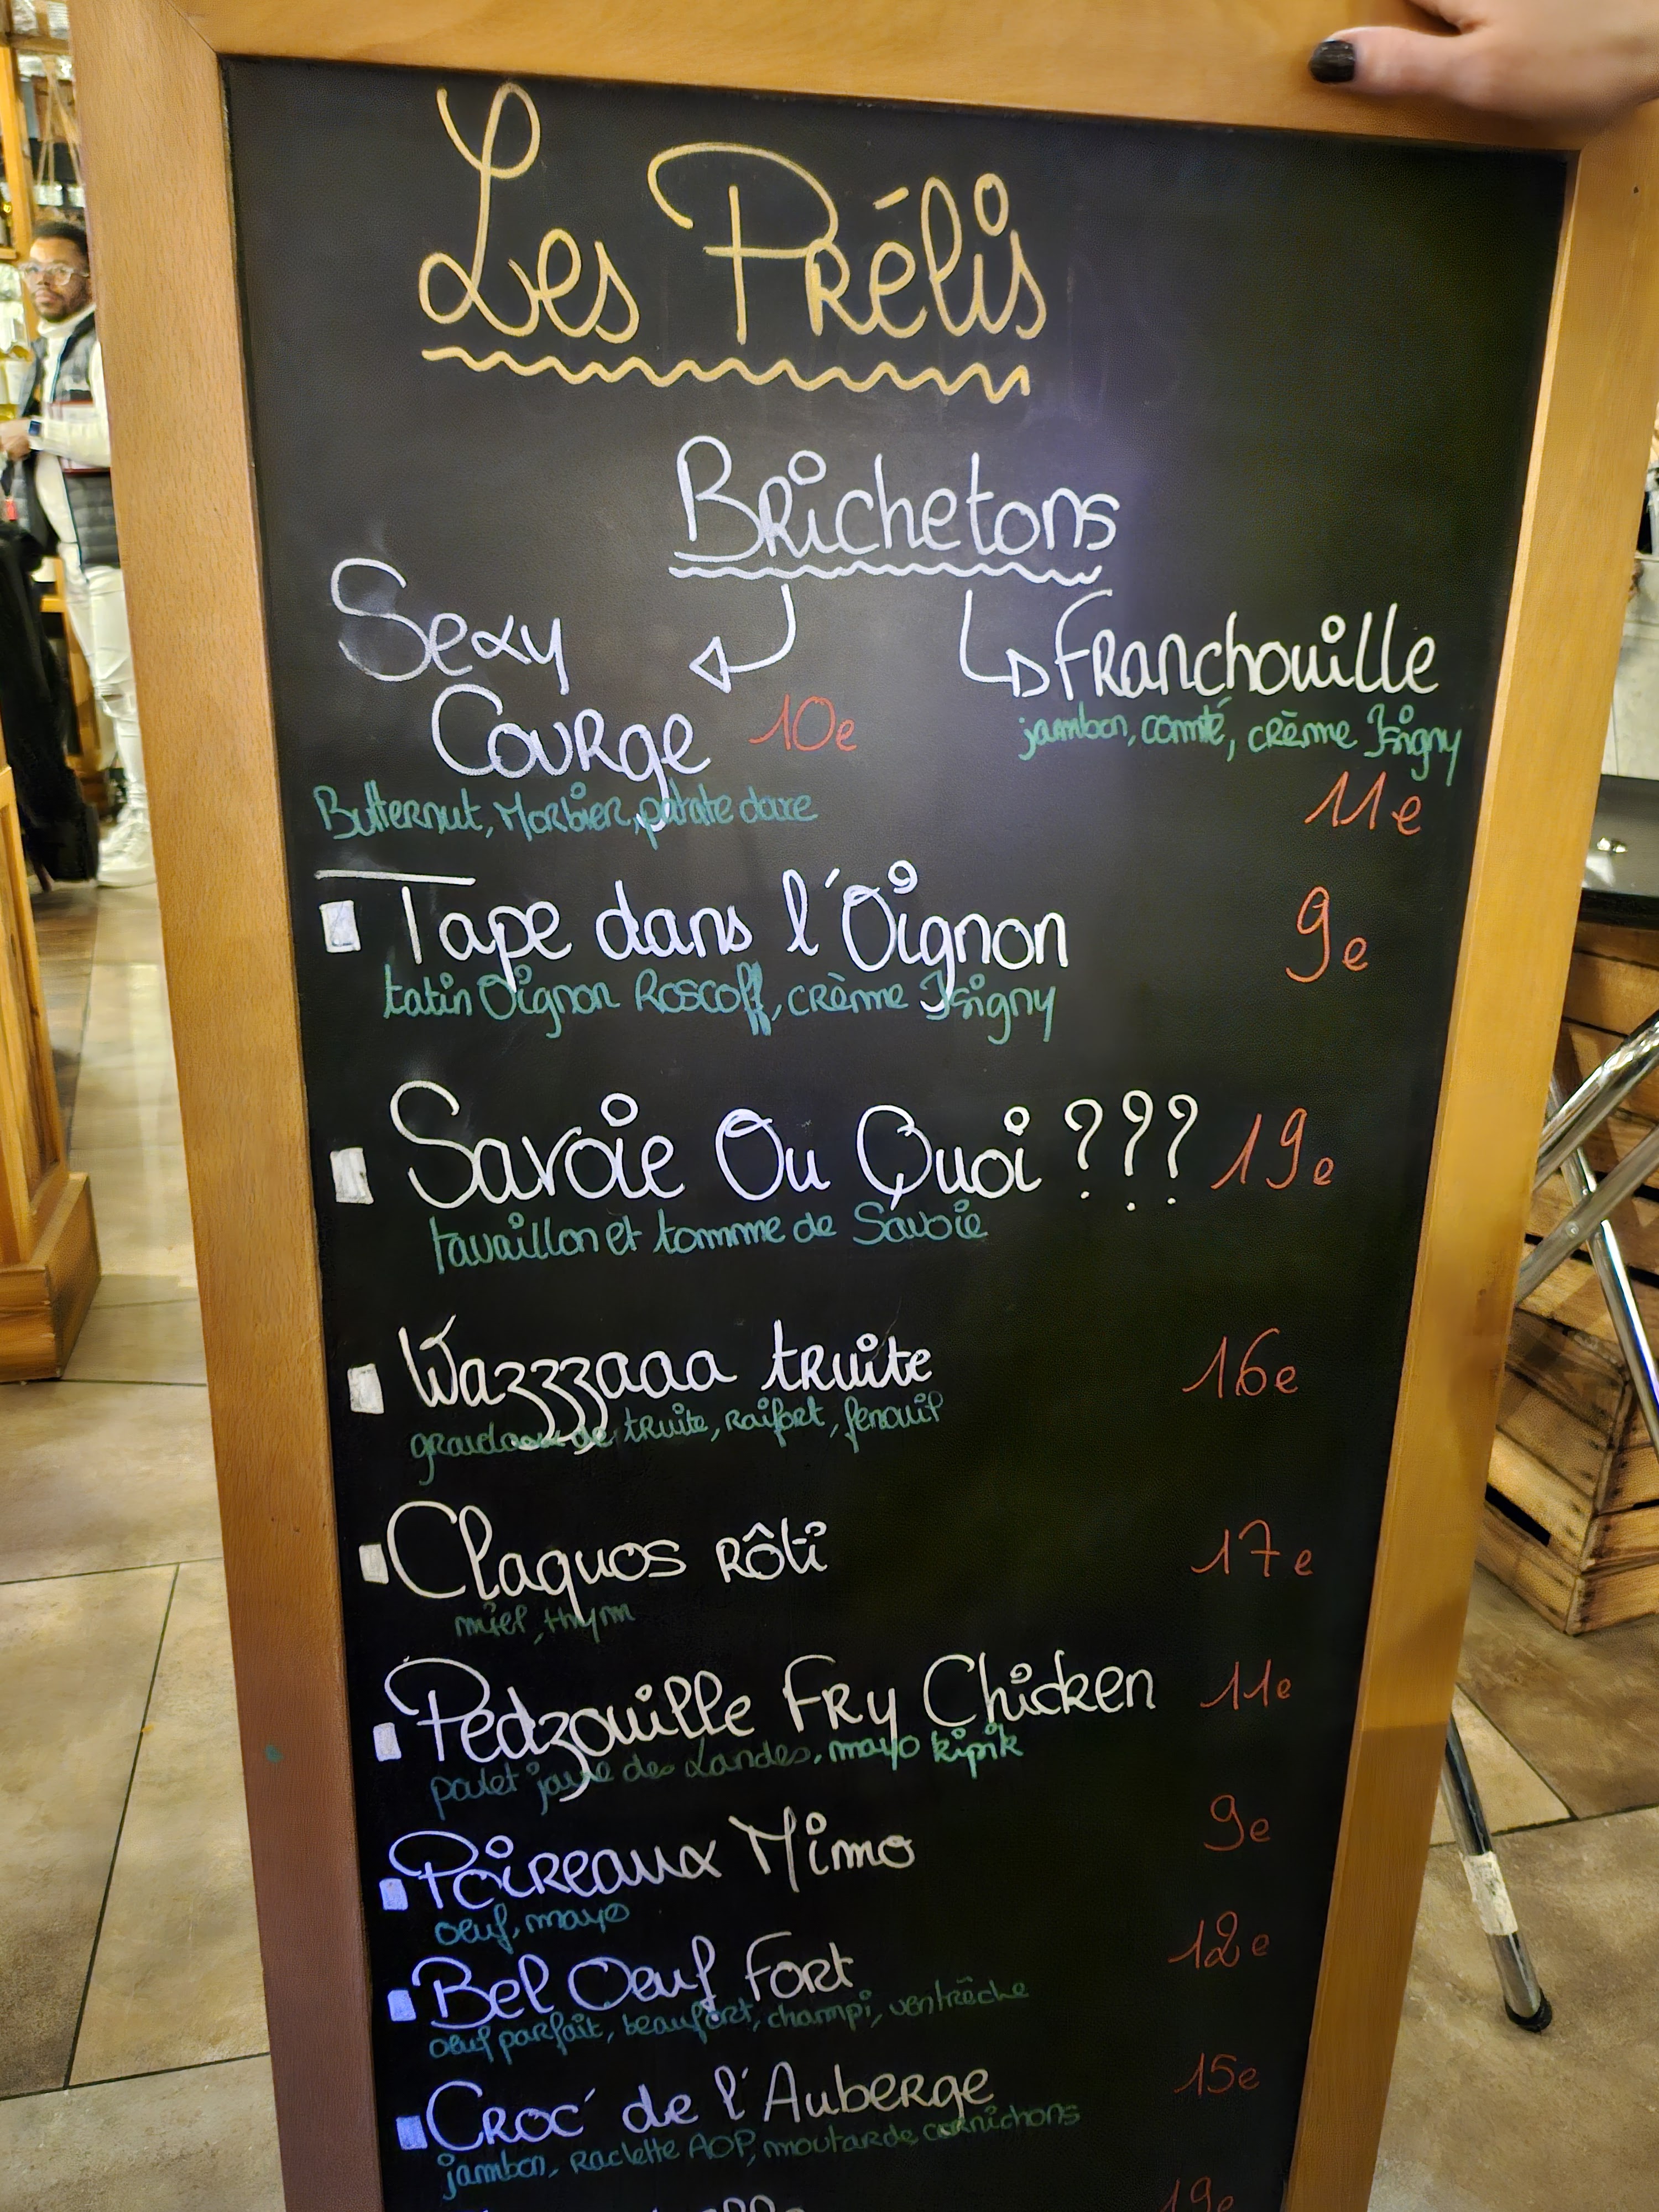 Les Prélis
Brichetons
Sexy
Courge 10e
Butternut, Morbier, patate douce
Franchouille
jambon, comté, crème Isigny
11e
Tape dans l'Oignon 9e
tatin Oignon Roscoff, crème Isigny
Savoie Ou Quoi ??? 19e
tavaillon et tomme de Savoie
Wazzzaaa truite 16e
de truite, raifort, fenouil
Claquos rôti 17e
miel, thym
Pedzouille Fry Chicken 11e
poulet jaune des Landes, mayo kipik
Poireaux Mimo 9e
oeuf, mayo
Bel Oeuf Fort 12e
oeuf parfait, beaufort, champi, ventrêche
Croc' de l'Auberge 15e
jambon, raclette AOP, moutarde, cornichons
19e